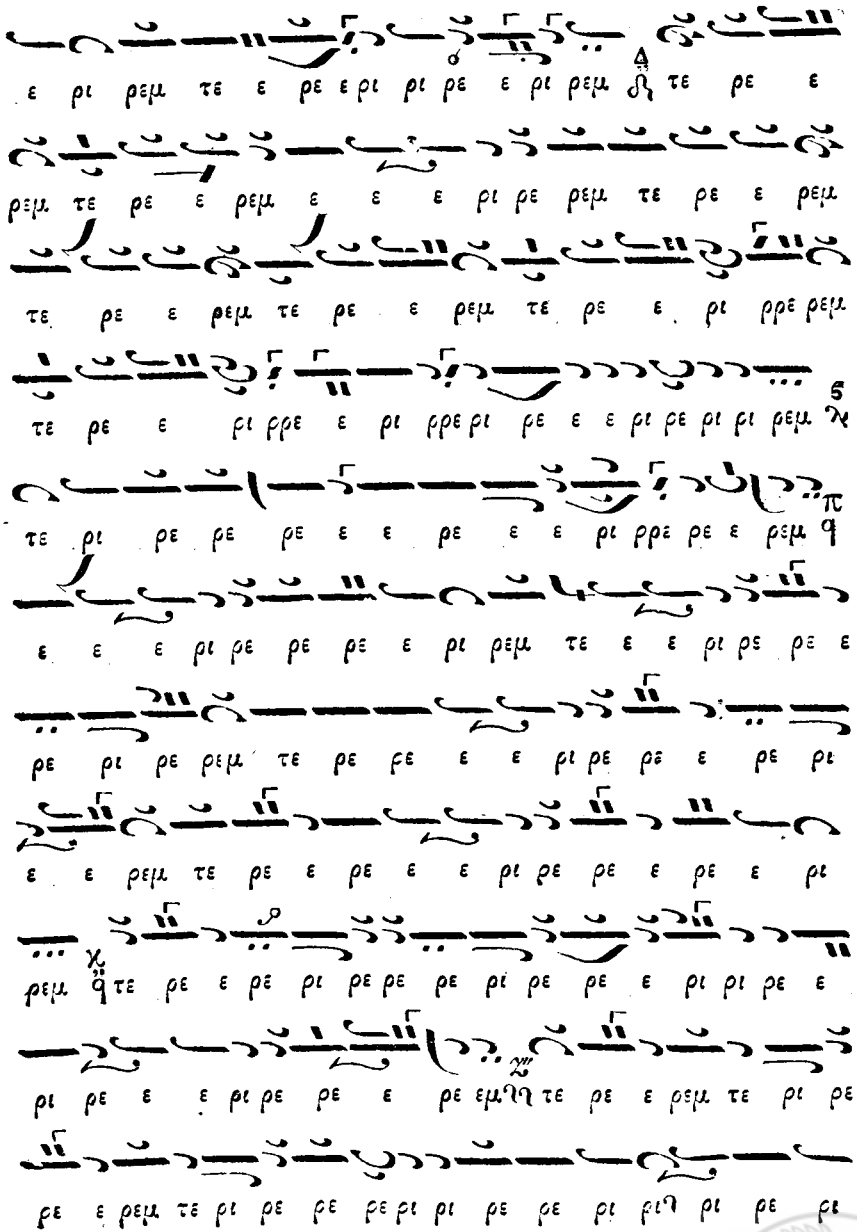 ε ρι ρεμ τε ε ρε ε ρι ρι ρε ε ρι ρεμ Δ τε ρε ε
ρεμ τε ρε ε ρεμ ε ε ε ρι ρε ρεμ τε ρε ε ρεμ
τε ρε ε ρεμ τε ρε ε ρεμ τε ρε ε ρι ρρε ρεμ
τε ρε ε ρι ρρε ε ρι ρρε ρι ρε ε ε ρι ρε ρι ρι ρεμ
τε ρι ρε ρε ρε ε ε ρε ε ε ρι ρρε ρε ε ρεμ π q
ε ε ε ρι ρε ρε ρε ε ρι ρεμ τε ε ε ρι ρε ρε ε
ρε ρι ρε ρεμ τε ρε ρε ε ε ρι ρε ρε ε ρε ρι
ε ε ρεμ τε ρε ε ρε ε ε ρι ρε ρε ε ρε ε ρι
ρεμ χ q τε ρε ε ρε ρι ρε ρε ρε ρι ρε ρε ε ρι ρι ρε ε
ρι ρε ε ε ρι ρε ρε ε ρε εμ τε ρε ε ρεμ τε ρι ρε
ρε ε ρεμ τε ρι ρε ρε ρε ρι ρι ρε ρε ρι ρι ρι ρε ρι